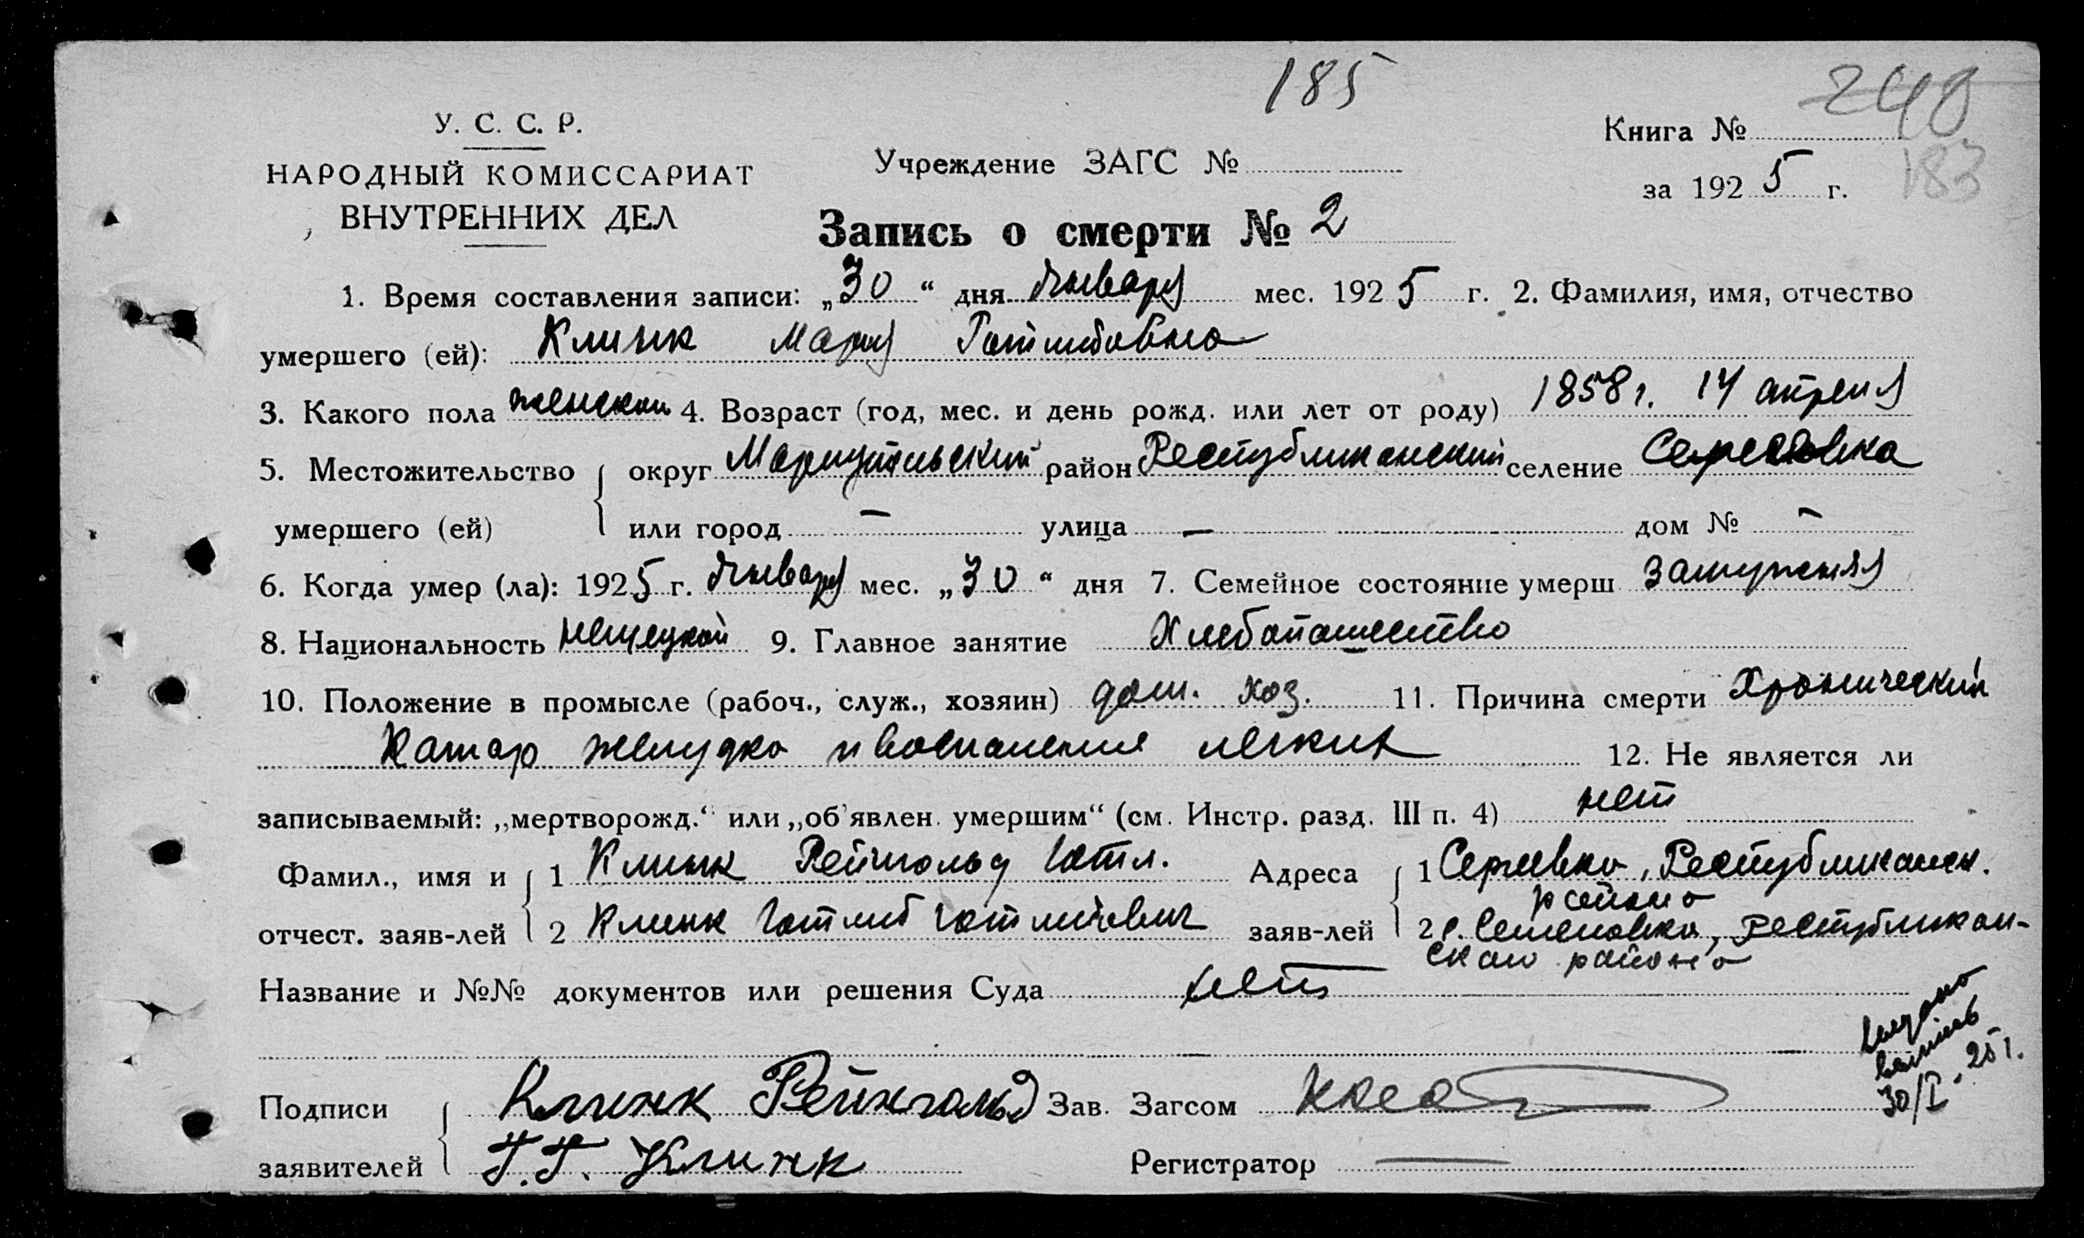 185
240
У. С. С. Р.
НАРОДНЫЙ КОМИССАРИАТ
ВНУТРЕННИХ ДЕЛ
Учреждение ЗАГС №
Книга №
за 1925 г.
183
Запись о смерти № 2
1. Время составления записи: „30“ дня января мес. 1925 г. 2. Фамилия, имя, отчество
умершего (ей): Клинк Мария Готлибовна
3. Какого пола женском 4. Возраст (год, мес. и день рожд. или лет от роду) 1858 г. 14 апреля
5. Местожительство округ Мариупольский район Республиканский селение Сергеевка
умершего (ей) или город — улица — дом № -
6. Когда умер (ла): 1925 г. января мес. „30“ дня 7. Семейное состояние умерш замужняя
8. Национальность немецкой 9. Главное занятие Хлебопашество
10. Положение в промысле (рабоч., служ., хозяин) дом. хоз. 11. Причина смерти Хронический
катар желудка и воспаление легких 12. Не является ли
записываемый: „мертворожд.“ или „об'явлен. умершим“ (см. Инстр. разд. III п. 4) нет
Фамил., имя и 1 Клинк Рейнгольд Готл. Адреса 1 Сергеевка, Республиканск.
района
отчест. заяв-лей 2 Клинк Готлиб Готлибович заяв-лей 2 с. Семеновка, Республикан-
скаго района
Название и №№ документов или решения Суда нет
выдано
выпись
30/I-25 г.
Подписи Клинк Рейнгольд Зав. Загсом
заявителей Г. Г. Клинк Регистратор —